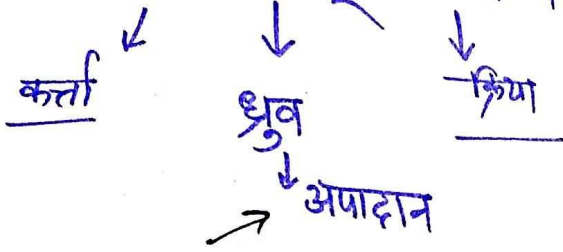 कर्त्ता ध्रुव क्रिया
अपादान